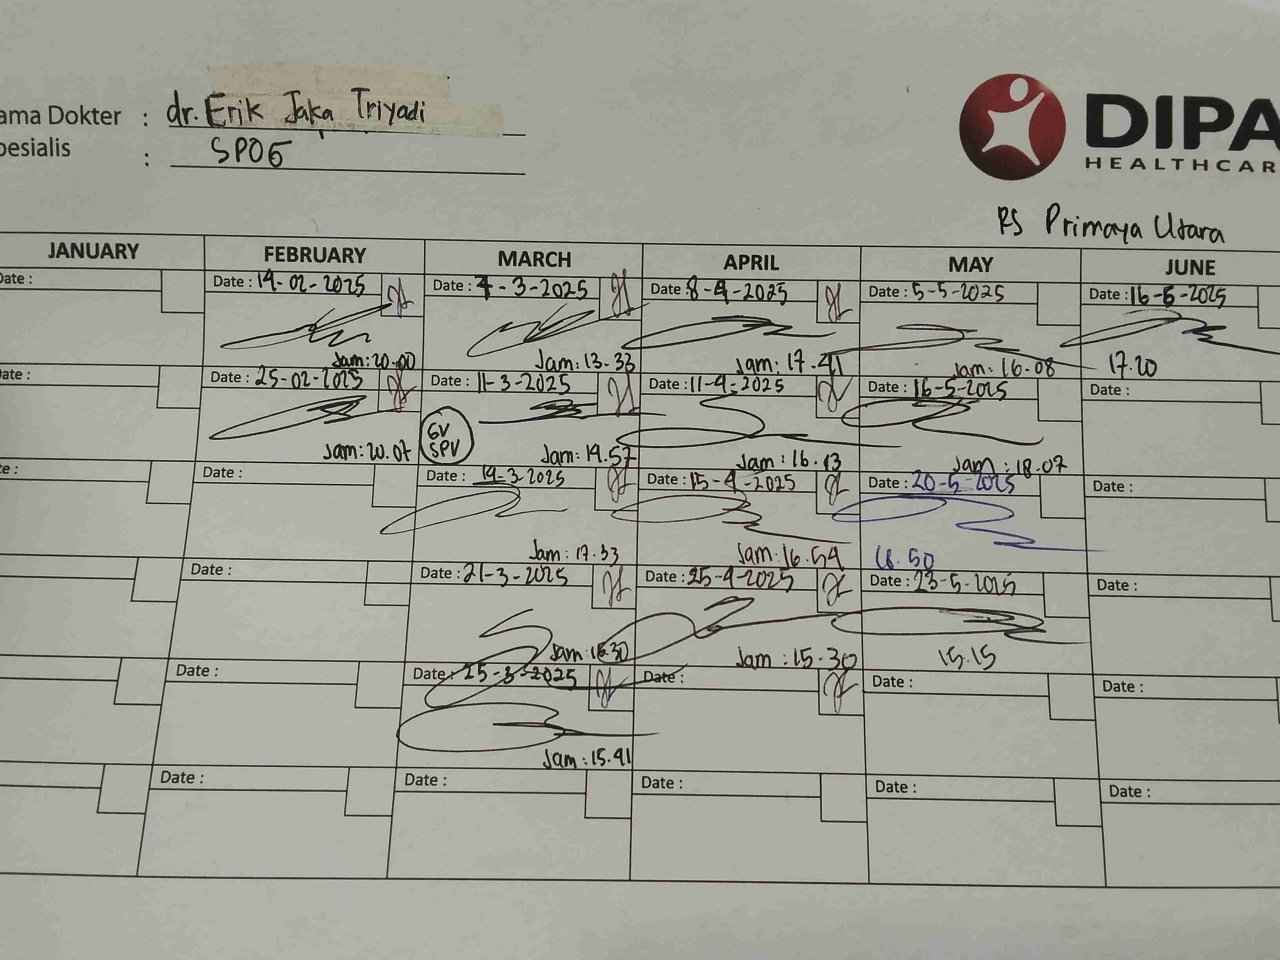 ama Dokter : dr. Erik Jaka Triyadi
pesialis : SPOG
DIPA
HEALTHCAR
RS Primaya Utara
JANUARY FEBRUARY MARCH APRIL MAY JUNE
Date : Date : 19-02-2025 Date : 4-3-2025 Date : 8-4-2025 Date : 5-5-2025 Date : 16-6-2025
Jam : 20.00 Jam : 13.33 Jam : 17.41 Jam : 16.08 17.20
ate : Date : 25-02-2025 Date : 11-3-2025 Date : 11-4-2025 Date : 16-5-2025 Date :
GV
SPV
Jam : 20.07 Jam : 14.57 Jam : 16.13 Jam : 18.07
te : Date : Date : 19-3-2025 Date : 15-4-2025 Date : 20-5-2025 Date :
Jam : 17.33 Jam : 16.54 16.50
Date : Date : 21-3-2025 Date : 25-4-2025 Date : 23-5-2025 Date :
Jam : 16.30 Jam : 15.30 15.15
Date : Date : 25-3-2025 Date : Date : Date :
Jam : 15.41
Date : Date : Date : Date : Date :